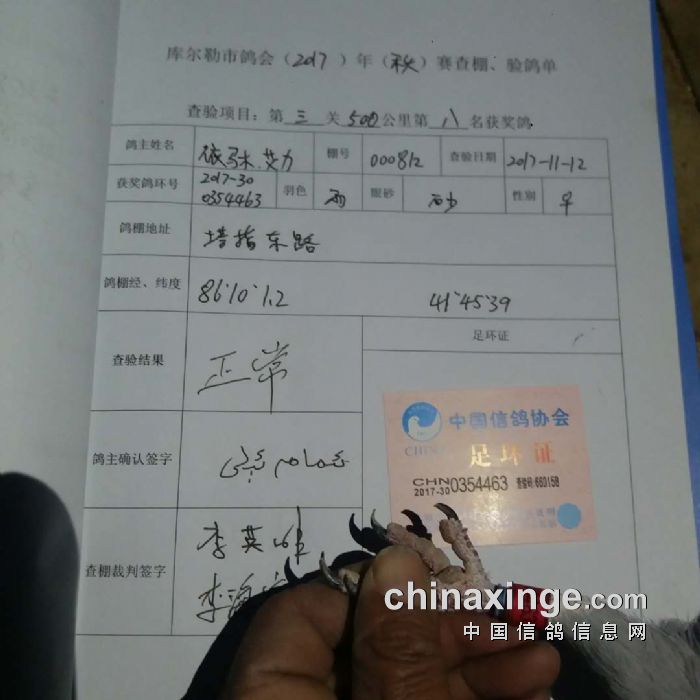 库尔勒市鸽会（2017）年（秋）赛查棚、验鸽单
查验项目：第 三 关 500 公里第 八 名获奖鸽
鸽主姓名 依马木.艾力 棚号 000812 查验日期 2017-11-12
获奖鸽环号 2017-30 0354463 羽色 雨 眼砂 砂 性别 早
鸽棚地址 塔指东路
鸽棚经、纬度 86°10'1.2 41°45'39
足环证
查验结果 正常
中国信鸽协会
足环证
CHN
2017-30 0354463 查验码:660158
鸽主确认签字
查棚裁判签字 李英
李海
chinaxinge.com
中国信鸽信息网